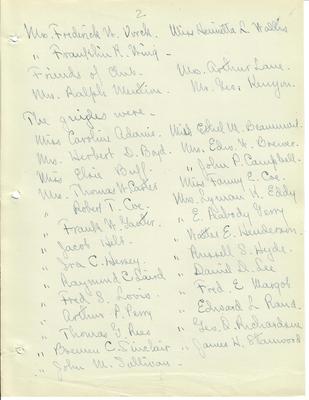 2
Mrs. Frederick W. Dorck. Miss Henrietta L. Wallis
" Franklin K. Wing -
Friends of Club. Mrs. Arthur Lane.
Mrs. Ralph Mention. Mr. Geo. Kenyon.
The singles were -
Miss Caroline Adams. Miss Ethel M. Beaumont.
Mrs. Herbert D. Boyd. Mrs. Edw. W. Brewer.
Miss Elsie Buff. " John P. Campbell.
Mrs. Thomas W. Carter Miss Fanny E. Coe.
" Robert T. Coe. Mrs. Lyman K. Eddy
" Frank W. " E. Peabody Gerry
" Jacob " Walter E. Henderson.
" Ira C. Hersey. " Russell S. Hyde.
" Raymond C. Laird " David D. Lee
" Fred S. Loomis " Fred. E. Margot
" Arthur P. Perry " Edward L. Rand.
" Thomas G. Rees " Geo. D. Richardson
" Bremer C. Sinclair " James H. Stanwood
" John M. Sullivan -